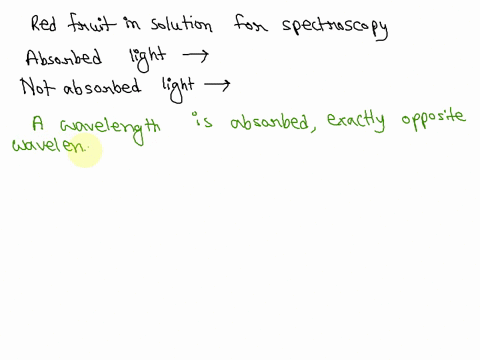 Red fruit in solution for spectroscopy
Absorbed light →
Not absorbed light →
A wavelength is absorbed, exactly opposite
wavelen